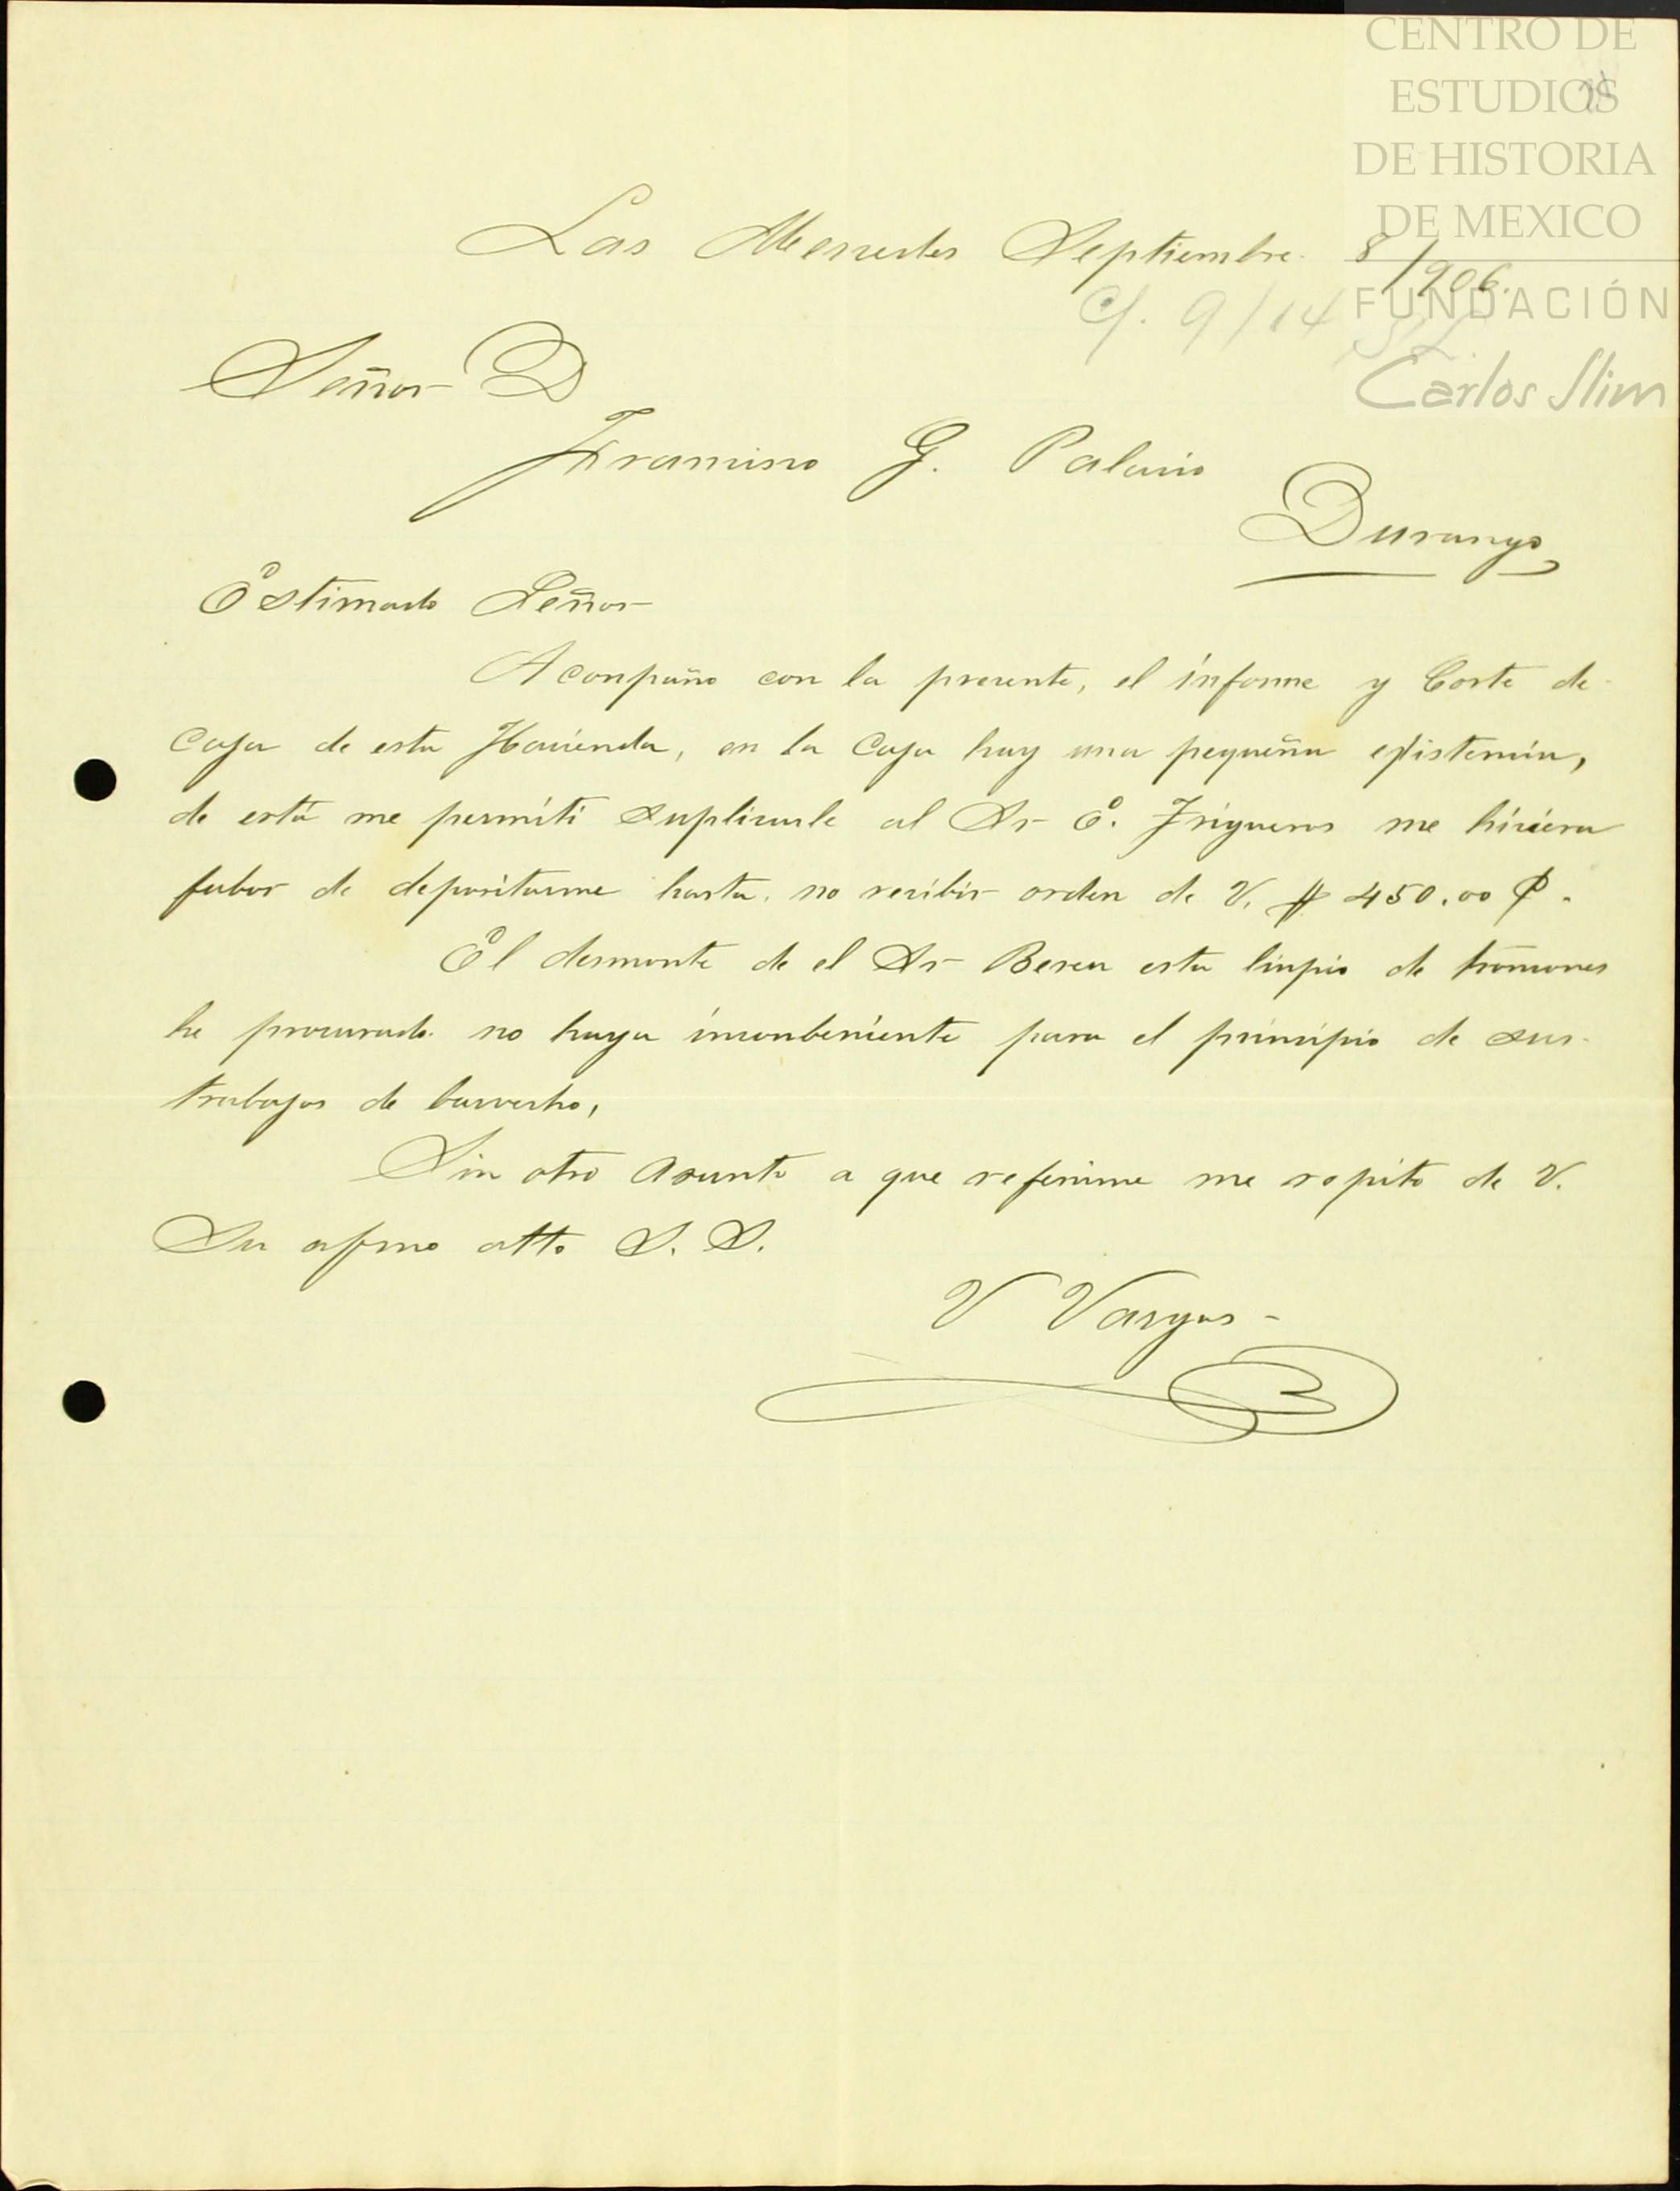 CENTRO DE
ESTUDIOS
DE HISTORIA
DE MEXICO
FUNDACIÓN
Carlos Slim
Las Mercedes Septiembre 8/906.
C/. 9/14
Señor D
Francisco G. Palacio
Durango
Estimado Señor
Aconpaño con la presente, el informe y Corte de
Caja de esta Hacienda, en la Caja hay una pequeña existencia,
de está me permiti suplicarle al Sr E. Trigueros me hiciera
fabor de depositarme hasta no recibir orden de V. $ 450.00 ȼ.
El desmonte de el Sr Berea esta linpio de troncones
he procurado no haya inconbeniente para el principio de sus
trabajos de barvecho,
Sin otro asunto a que referirme me repito de V.
Su afmo atto S. S.
V Vargas